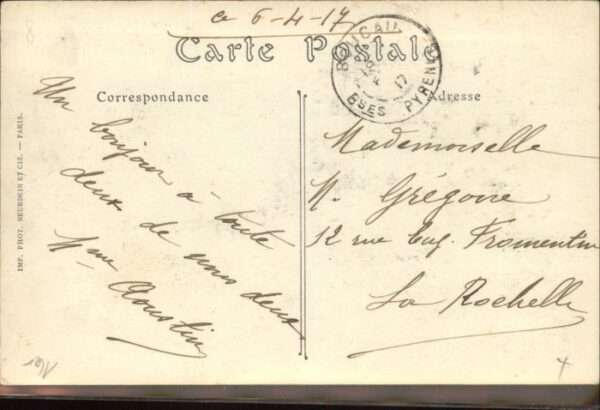 ce 6-4-17
Carte Postale
BOUCAU
17
BSES PYRENEES
Correspondance
Adresse
Un bonjour à toute
deux de nous deux
Mme
Mademoiselle
M. Grégoire
12 rue Eug. Fromentin
La Rochelle
IMP. PHOT. NEURDEIN ET CIE. — PARIS.